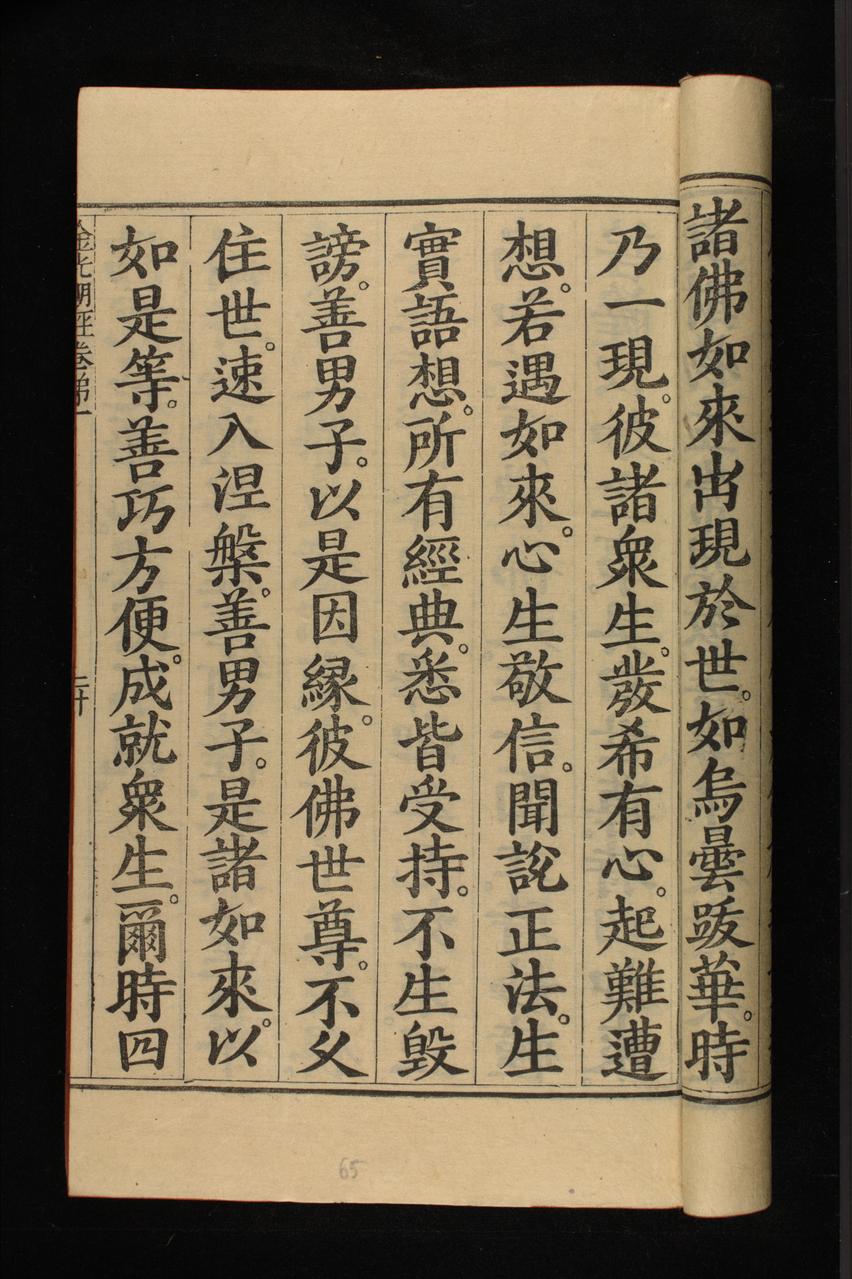 諸佛如來出現於世。如烏曇跋華。時
乃一現。彼諸衆生。發希有心。起難遭
想。若遇如來。心生敬信。聞説正法。生
實語想。所有經典。悉皆受持。不生毀
謗。善男子。以是因緣。彼佛世尊。不久
住世。速入涅槃。善男子。是諸如來。以
如是等。善巧方便。成就衆生。爾時四
金光明經卷第一
65